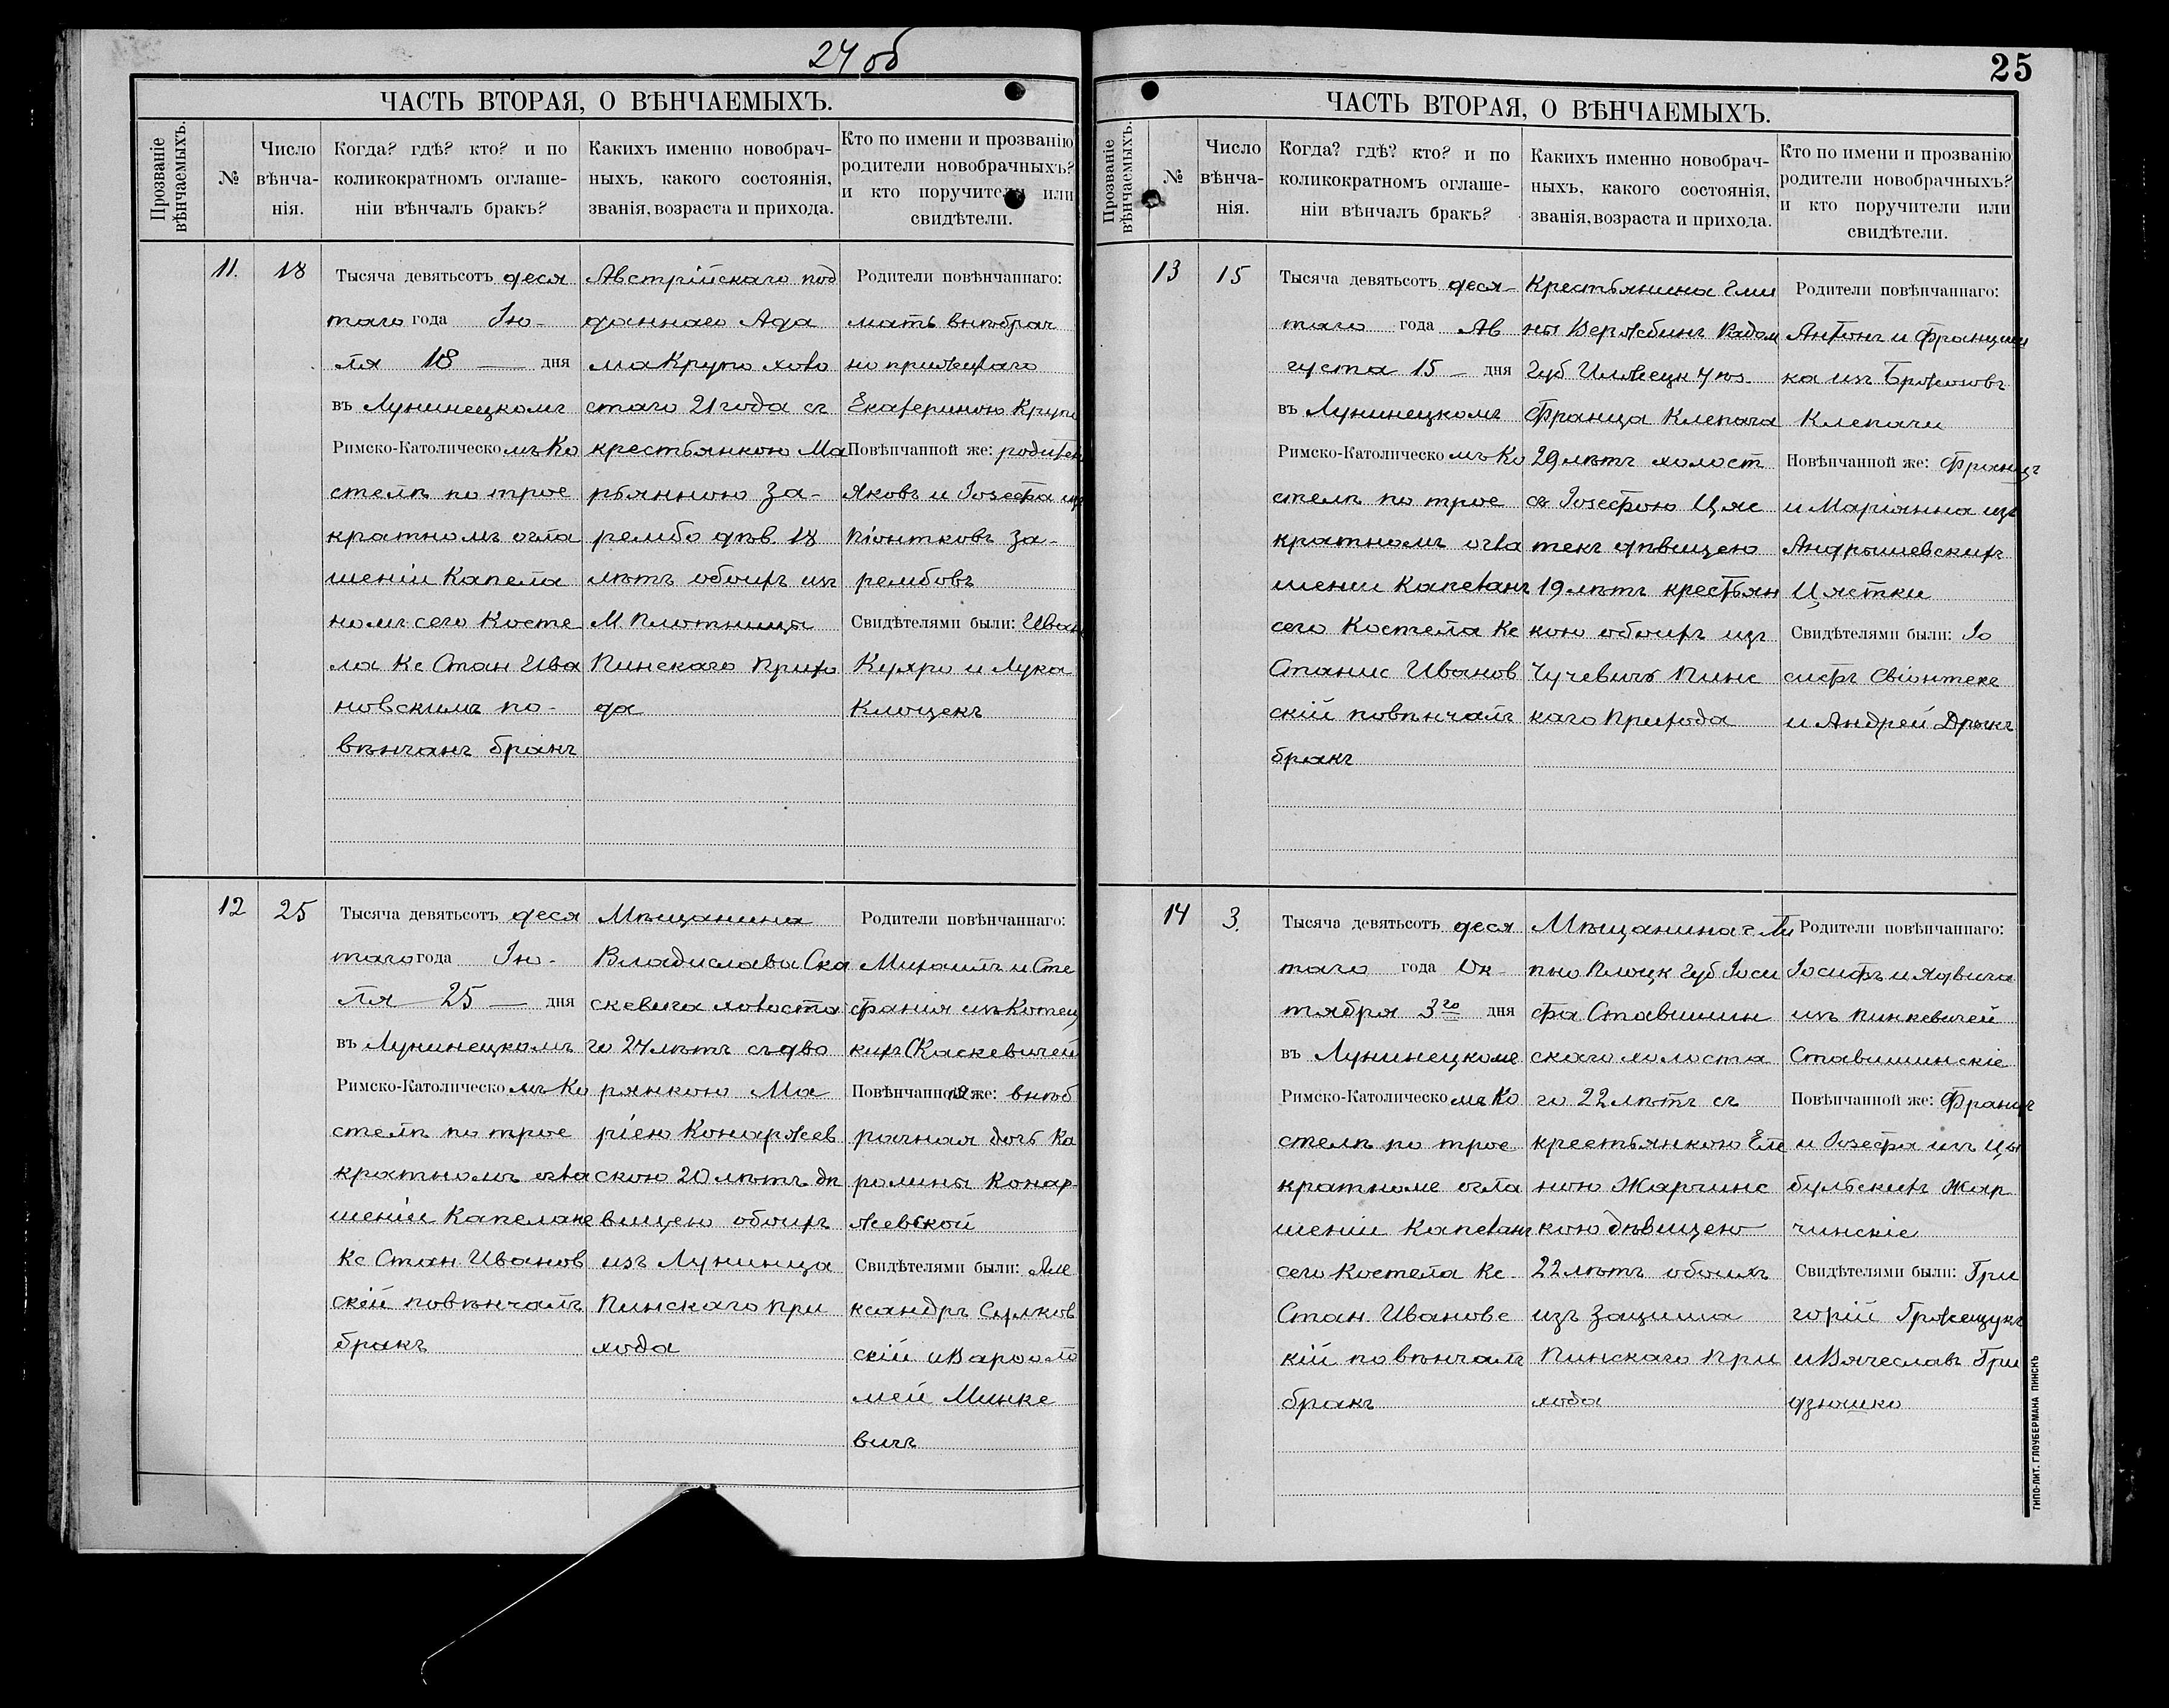 24 об
ЧАСТЬ ВТОРАЯ, О ВѢНЧАЕМЫХЪ.
Прозваніе вѣнчаемыхъ.
№
Число вѣнча-
нія.
Когда? гдѣ? кто? и по
коликократномъ оглаше-
ніи вѣнчалъ бракъ?
Какихъ именно новобрач-
ныхъ, какого состоянія,
званія, возраста и прихода.
Кто по имени и прозванію
родители новобрачныхъ?
и кто поручители или
свидѣтели.
11.
18
Тысяча девятьсотъ деся
таго года Iю-
ля 18 — дня
въ Лунинецкомъ
Римско-Католическомъ Ко
стелѣ по трое
кратномъ огла
шеніи Капела
номъ сего Косте
ла Кс Стан Ива
новскимъ по-
вѣнчанъ бракъ
Австрійскаго под
даннаго Ада
ма Крупы холо
стаго 21 года съ
крестьянкою Ма
рьянною За-
рембо дѣв. 18
лѣтъ обоихъ из
М. Плотницы
Пинскаго Прихо
да
Родители повѣнчаннаго:
мать внѣбрач
но прижитаго
Екатериною Крупа
Повѣнчанной же: родители
Яковъ и Іозефа из
Піонтковъ За-
рембовъ
Свидѣтелями были: Иван
Куяро и Лука
Клоцекъ
12
25
Тысяча девятьсотъ деся
таго года Iю-
ля — 25 — дня
въ Лунинецкомъ
Римско-Католическомъ Ко
стелѣ по трое
кратномъ огла
шеніи Капелане
Кс Стан Иванов
скій повѣнчалъ
бракъ
Мѣщанина
Владислава Ска
скевича холоста
го 24 лѣтъ съ дво
рянкою Ма
ріею Конаржев
скою 20 лѣтъ дѣ
вицею обоихъ
изъ Лунинца
Пинскаго При
хода
Родители повѣнчаннаго:
Михаилъ и Сте
фанія изъ Котец
кихъ Скаскевичей
Повѣнчанной же: внѣб
рачная дочь Ка
ролины Конар-
жевской
Свидѣтелями были: Але
ксандръ Сулков
скій и Вароло
мей Минке
вичъ
25
ЧАСТЬ ВТОРАЯ, О ВѢНЧАЕМЫХЪ.
Прозваніе вѣнчаемыхъ.
№
Число вѣнча-
нія.
Когда? гдѣ? кто? и по
коликократномъ оглаше-
ніи вѣнчалъ бракъ?
Какихъ именно новобрач-
ныхъ, какого состоянія,
званія, возраста и прихода.
Кто по имени и прозванію
родители новобрачныхъ?
и кто поручители или
свидѣтели.
13
15
Тысяча девятьсотъ деся-
таго года Ав
густа 15 — дня
въ Лунинецкомъ
Римско-Католическомъ Ко
стелѣ по трое
кратномъ огла
шеніи Капеланъ
сего Костела Кс
Станис Иванов
скій повѣнчалъ
бракъ
Крестьянина Гми
ны Вержбинъ Радом
Губ Илжецк Уѣз.
Франца Клепача
29 лѣтъ холост
съ Іозефою Цяс
текъ дѣвицею
19 лѣтъ крестьян
кою обоихъ изъ
Чучевичъ Пинс
каго Прихода
Родители повѣнчаннаго:
Антонъ и Францишка
ка изъ Бржозовъ
Клепачи
Повѣнчанной же: Францъ
и Маріянна изъ
Андрышевскихъ
Цястки
Свидѣтелями были: Іо
сифъ Свіонтекъ
и Андрей Дрыкъ
14
3.
Тысяча девятьсотъ деся
таго года Ок-
тября 3го дня
въ Лунинецкоме
Римско-Католическомъ Ко
стелѣ по трое
кратноме огла
шеніи Капеланъ
сего Костела Кс.
Стан. Ивановс
кій повѣнчалъ
бракъ
Мѣщанина г. Ли
пно Плоцк Губ Іоси
фа Ставишин
скаго холоста
го 22 лѣтъ съ
крестьянкою Еле
ною Жарчинс
кою дѣвицею
22 лѣтъ обоихъ
изъ Зацишa
Пинскаго При
хода
Родители повѣнчаннаго:
Іосифъ и Ядвига
изъ Пинкевичей
Ставишинскіе
Повѣнчанной же: Францъ
и Іозефа изъ Цы
бульскихъ Жар
чинскіе
Свидѣтелями были: Гри
горій Гржещукъ
и Вячеславъ Гри
дзюшко
ТИПО-ЛИТ. ГЛОУБЕРМАНА ПИНСКЪ